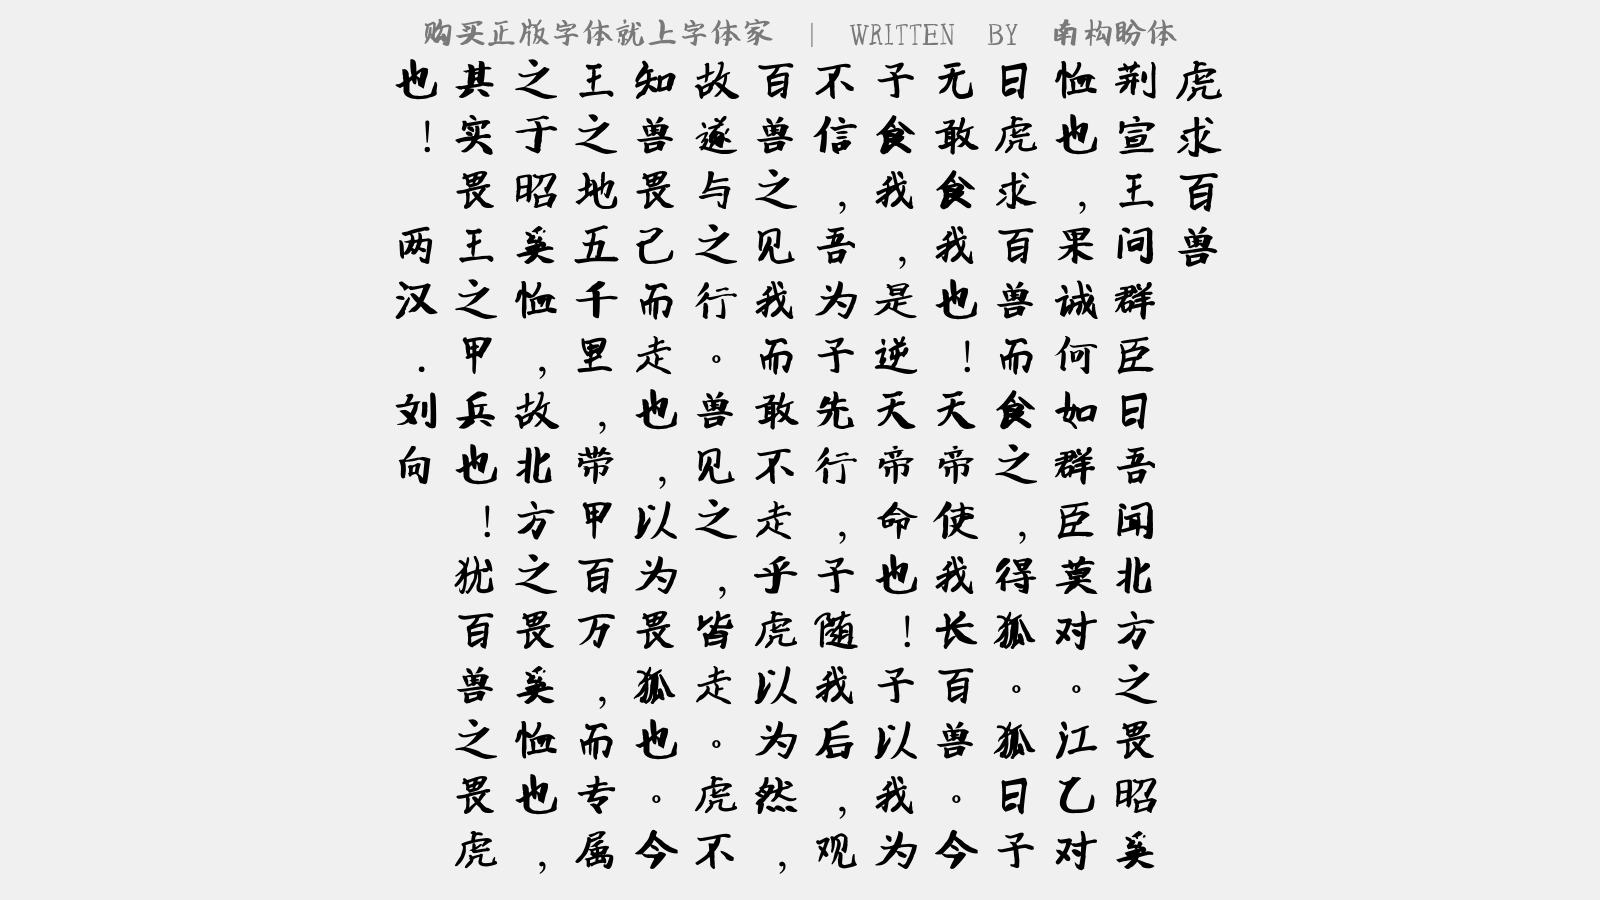 购买正版字体就上字体家 | WRITTEN BY 南构盼体
虎求百兽
荆宣王问群臣曰吾闻北方之畏昭奚
恤也，果诚何如群臣莫对。江乙对
曰虎求百兽而食之，得狐。狐曰子
无敢食我也！天帝使我长百兽。今
子食我，是逆天帝命也！子以我为
不信，吾为子先行，子随我后，观
百兽之见我而敢不走乎虎以为然，
故遂与之行。兽见之，皆走。虎不
知兽畏己而走也，以为畏狐也。今
王之地五千里，带甲百万，而专属
之于昭奚恤，故北方之畏奚恤也，
其实畏王之甲兵也！犹百兽之畏虎
也！ 两汉.刘向